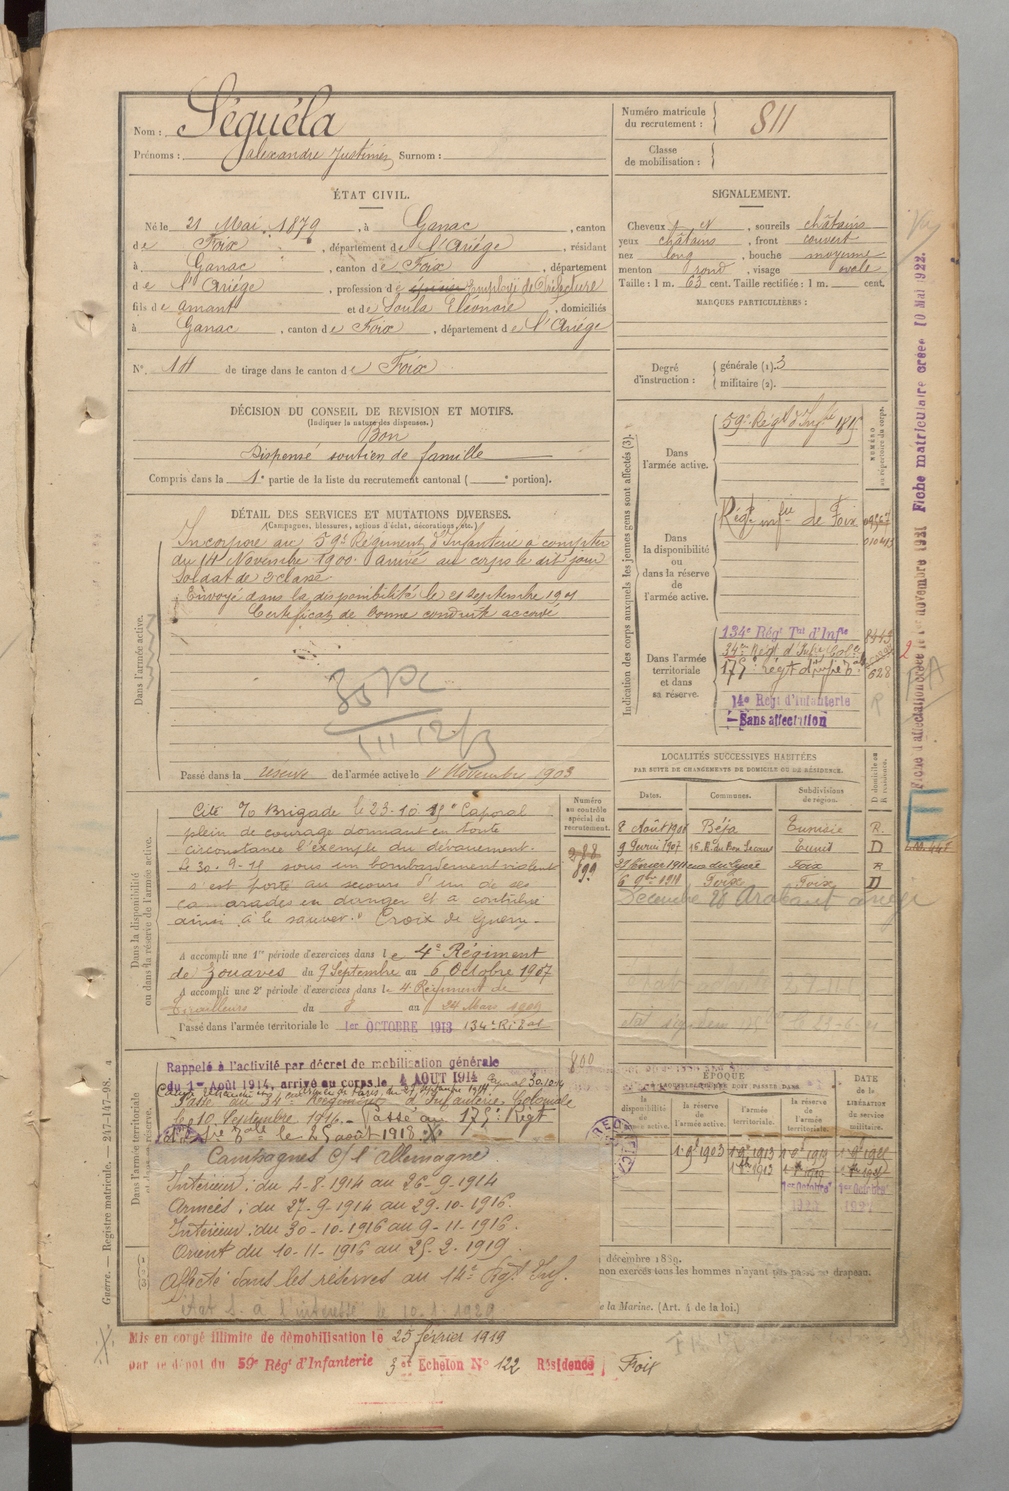 Nom : Séguéla
Prénoms : Alexandre Justinien Surnom :
Numéro matricule du recrutement : 811
Classe de mobilisation :
ÉTAT CIVIL.
Né le 21 Mai 1879, à Ganac, canton
de Foix, département de l'Ariège, résidant
à Ganac, canton de Foix, département
de l'Ariège, profession de Employé de Préfecture
fils de Amant et de Soula Eléonore, domiciliés
à Ganac, canton de Foix, département de l'Ariège
N° 14 de tirage dans le canton de Foix
SIGNALEMENT.
Cheveux et sourcils châtains
yeux châtains, front couvert
nez long, bouche moyenne
menton rond, visage ovale
Taille : 1 m. 63 cent. Taille rectifiée : 1 m. cent.
MARQUES PARTICULIÈRES :
Degré d'instruction : générale (1). 3
militaire (2).
DÉCISION DU CONSEIL DE REVISION ET MOTIFS.
(Indiquer la nature des dispenses.)
Bon
Dispensé soutien de famille
Compris dans la 1e partie de la liste du recrutement cantonal ( e portion).
DÉTAIL DES SERVICES ET MUTATIONS DIVERSES.
(Campagnes, blessures, actions d'éclat, décorations, etc.)
Dans l'armée active.
Incorporé au 59e Régiment d'Infanterie à compter
du 14 Novembre 1900. Arrivé au corps le dit jour
Soldat de 2e classe
Envoyé dans la disponibilité le 21 septembre 1901
Certificat de bonne conduite accordé
Passé dans la réserve de l'armée active le 1 Novembre 1903
Dans la disponibilité ou dans la réserve de l'armée active.
Cité 70 Brigade le 23-10-15 "Caporal
plein de courage donnant en toute
circonstance l'exemple du dévouement.
Le 30-9-15 sous un bombardement violent
s'est porté au secours d'un de ses
camarades en danger et a contribué
ainsi à le sauver." Croix de guerre.
A accompli une 1re période d'exercices dans le 4e Régiment
de Zouaves du 9 Septembre au 6 Octobre 1907
A accompli une 2e période d'exercices dans le 4 Régiment de
Tirailleurs du 8 au 24 Mars 1909
Passé dans l'armée territoriale le 1er OCTOBRE 1913 134e R.I. Tal
Numéro au contrôle spécial du recrutement.
288
899
800
Dans l'armée territoriale et dans sa réserve.
Rappelé à l'activité par décret de mobilisation générale
du 1er Août 1914, arrivé au corps le 4 AOUT 1914
Passé au 34e Régiment d'Infanterie Coloniale
le 10 Septembre 1916. Passé au 175e Régt
le 25 août 1918
Campagnes c/ l'Allemagne
Intérieur : du 4-8-1914 au 26-9-1914
Armées : du 27-9-1914 au 29-10-1916.
Intérieur : du 30-10-1916 au 9-11-1916.
Orient du 10-11-1916 au 25-2-1919.
Affecté dans les réserves au 14e Régt Inf.
Mis en congé illimité de démobilisation le 25 février 1919
par le dépôt du 59e Régt d'Infanterie 3 et Echelon N° 122 Résidence Foix
Indication des corps auxquels les jeunes gens sont affectés (3).
NUMÉRO au répertoire du corps.
Dans l'armée active.
59e Régt d'Infie
Dans la disponibilité ou dans la réserve de l'armée active.
Régt infie de Foix
Dans l'armée territoriale et dans sa réserve.
134e Régt Tal d'Infie
34e Régt d'Infie Colle
175e régt d'infie
628
14e Régt d'Infanterie
Sans affectation
LOCALITÉS SUCCESSIVES HABITÉES
PAR SUITE DE CHANGEMENTS DE DOMICILE OU DE RÉSIDENCE.
Dates. Communes. Subdivisions de région. D domicile ou R résidence.
8 Août 1905 Béja Tunisie R.
9 février 1907 Tunis D
Foix R
Foix Foix D
ÉPOQUE
DATE de la LIBÉRATION du service militaire.
la disponibilité de l'armée active. la réserve de l'armée active. l'armée territoriale. la réserve de l'armée territoriale.
décembre 1889.
non exercés tous les hommes n'ayant pas passé au drapeau.
de la Marine. (Art. 4 de la loi.)
Fiche matriculaire créée 10 Mai 1922.
Guerre. — Registre matricule. — 247-147-98.